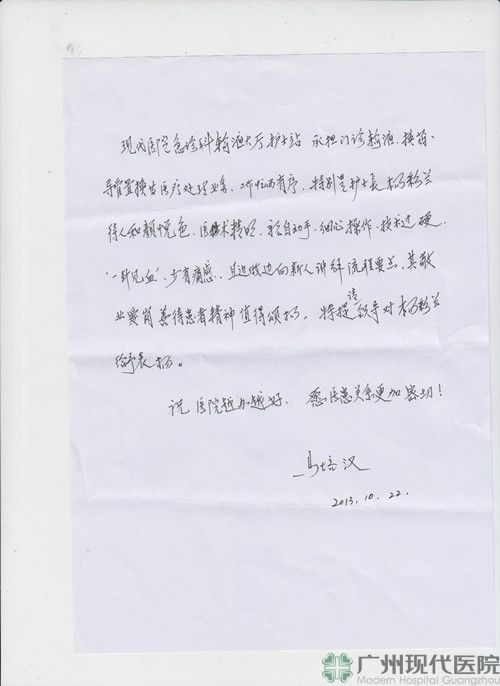 现代医院急诊科输液大厅护士站 承担门诊输液、换药、
导管置换等医疗处理业务、工作忙而有序、特别是护士长杨彩兰
待人和颜悦色、医技术精明、亲自动手、细心操作、技术过硬、
"一针见血"、少有痛感、且边做边向新人讲解流程要点、其敬
业爱岗善待患者精神值得颂扬。特提请领导对杨彩兰
给予表扬。
祝医院越办越好、愿医患关系更加密切！
马培汉
2013.10.22.
广州现代医院
Modern Hospital Guangzhou